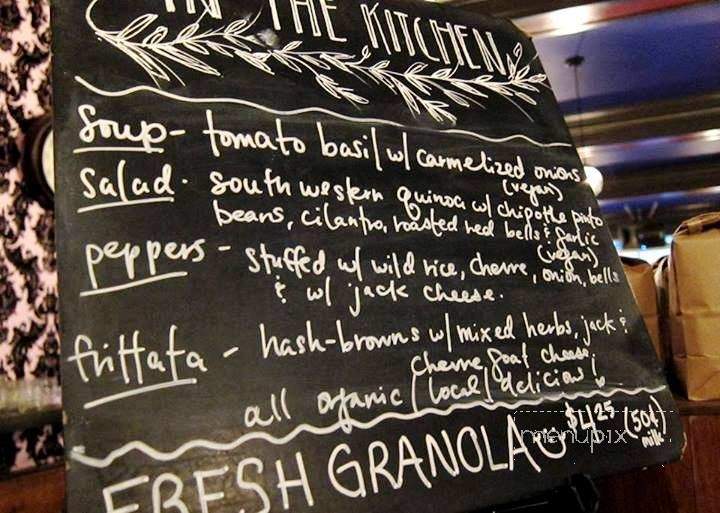 IN THE KITCHEN
Soup- tomato basil w/ carmelized onions
(vegan)
Salad. southwestern quinoa w/ chipotle pinto
beans, cilantro, roasted red bells & garlic
(vegan)
peppers - stuffed w/ wild rice, chevre, onion, bells
& w/ jack cheese.
frittata - hash-browns w/ mixed herbs, jack &
chevre goat cheese!
all organic/local/delicious!
FRESH GRANOLA $4.25 (50¢
milk)
menupix